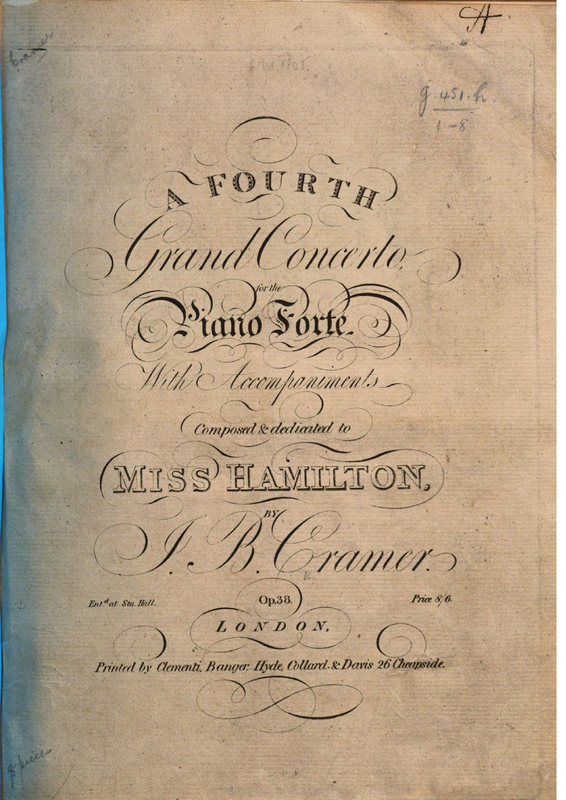 A
Cramer
g. 451. h.
1-8
A FOURTH
Grand Concerto,
for the
Piano Forte.
With Accompaniments
Composed & dedicated to
MISS HAMILTON,
BY
J. B. Cramer.
Ent.d at Sta. Hall.
Op.38.
Price 8/6.
LONDON,
Printed by Clementi, Banger, Hyde, Collard & Davis 26 Cheapside.